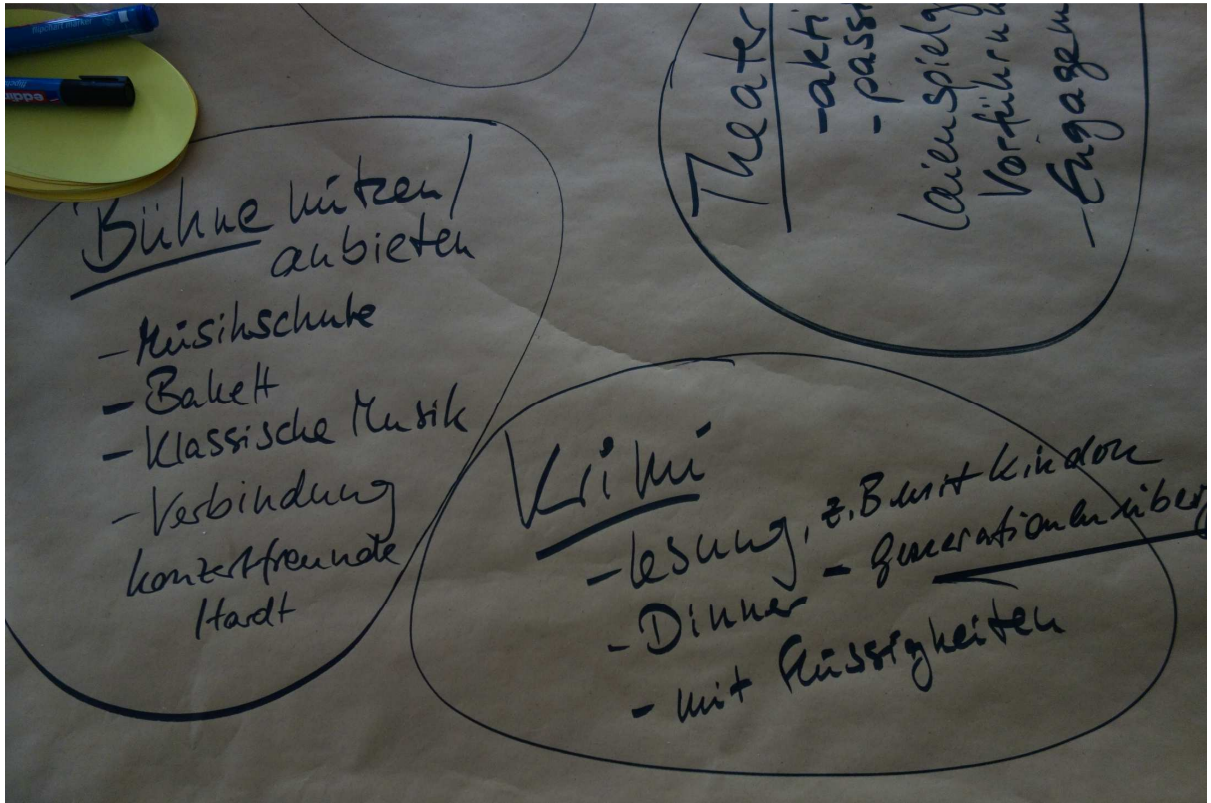 flipchart marker
eddin
Bühne nützen/
anbieten
- Müsikschule
- Ballett
- Klassische Musik
- Verbindung
Konzertfreunde
Hardt
Theater
- akti
- passi
Laienspielg
Vorführun
- Engagem
Krimi
- Lesung, z.B mit Kindern
- Dinner - generationenüberg
- mit Flüssigkeiten